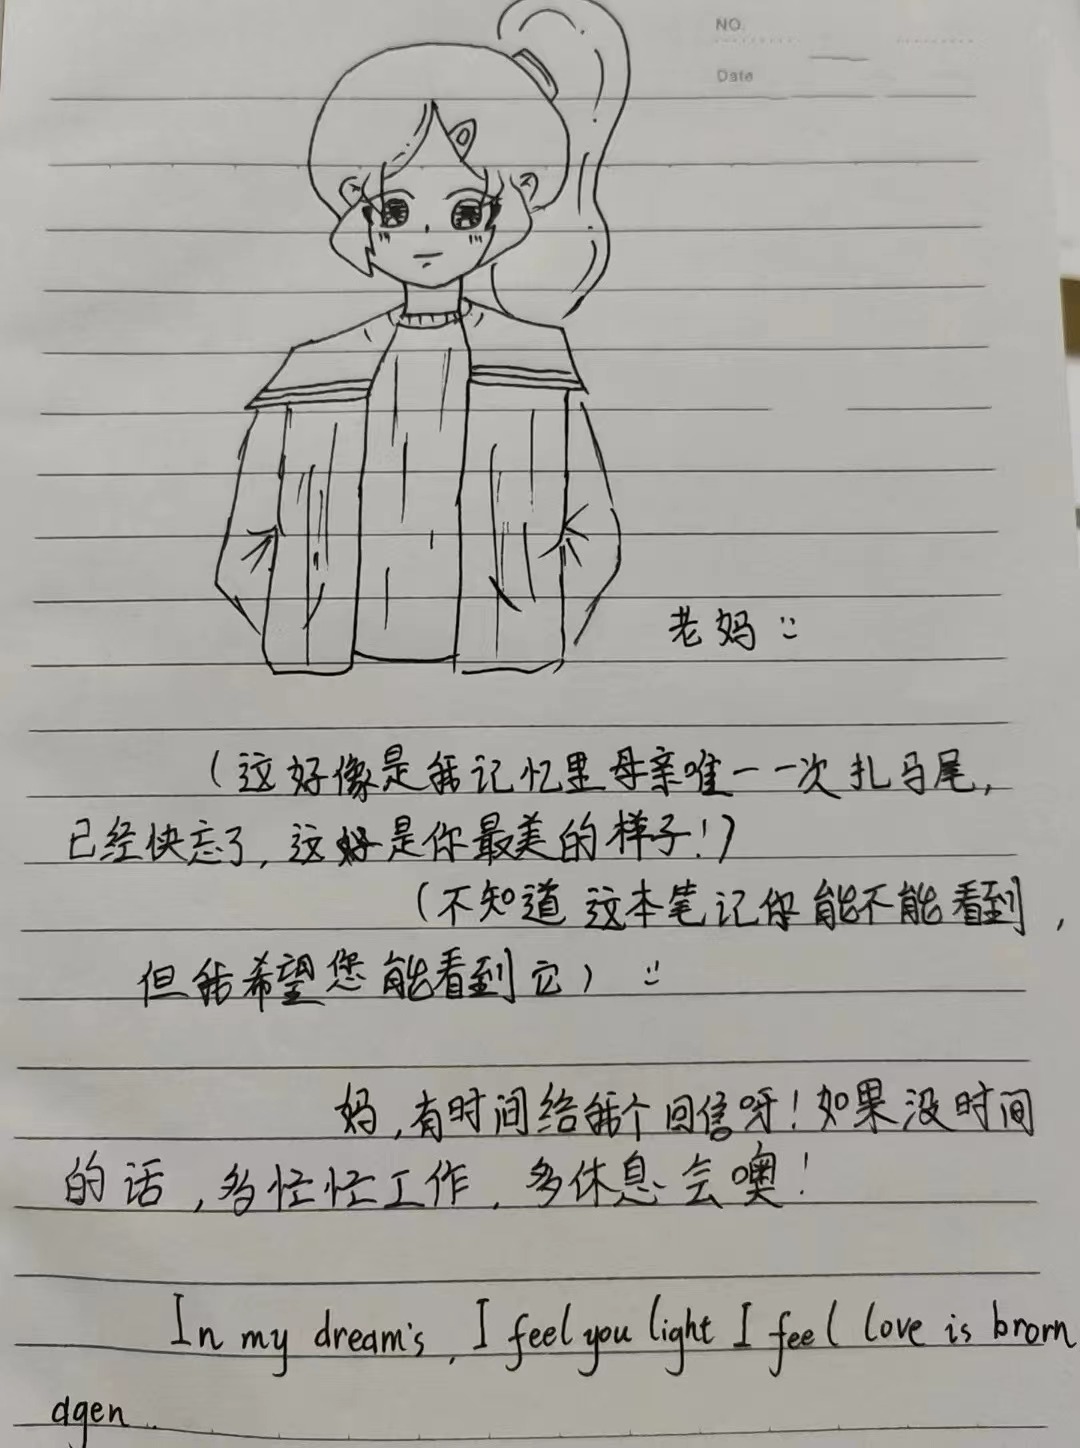 NO.
Date
老妈
(这好像是我记忆里母亲唯一一次扎马尾,
已经快忘了,这好是你最美的样子!)
(不知道这本笔记你能不能看到,
但我希望您能看到它)
妈,有时间给我个回信呀!如果没时间
的话,多怪怪工作,多休息会噢!
In my dream's, I feel you light I feel love is brorn
dgen..